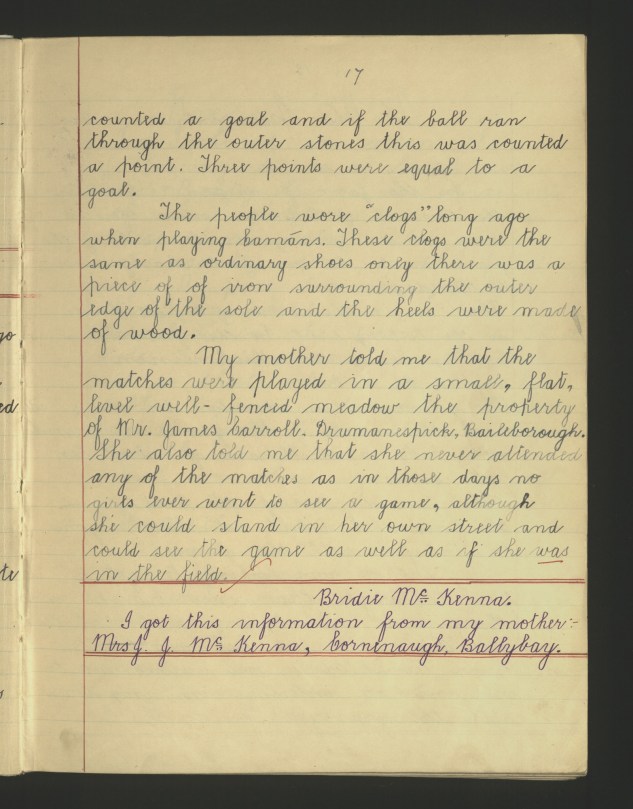 17
counted a goal and if the ball ran
through the outer stones this was counted
a point. Three points were equal to a
goal.
The people wore "clogs" long ago
when playing camáns. These clogs were the
same as ordinary shoes only there was a
piece of of iron surrounding the outer
edge of the sole and the heels were made
of wood.
My mother told me that the
matches were played in a small, flat,
level well-fenced meadow the property
of Mr. James Carroll. Drumanespick, Bailieborough.
She also told me that she never attended
any of the matches as in those days no
girls ever went to see a game, although
she could stand in her own street and
could see the game as well as if she was
in the field.
Bridie Mc Kenna.
I got this information from my mother:-
Mrs J. J. Mc Kenna, Cornenaugh, Ballybay.
go
ed
te